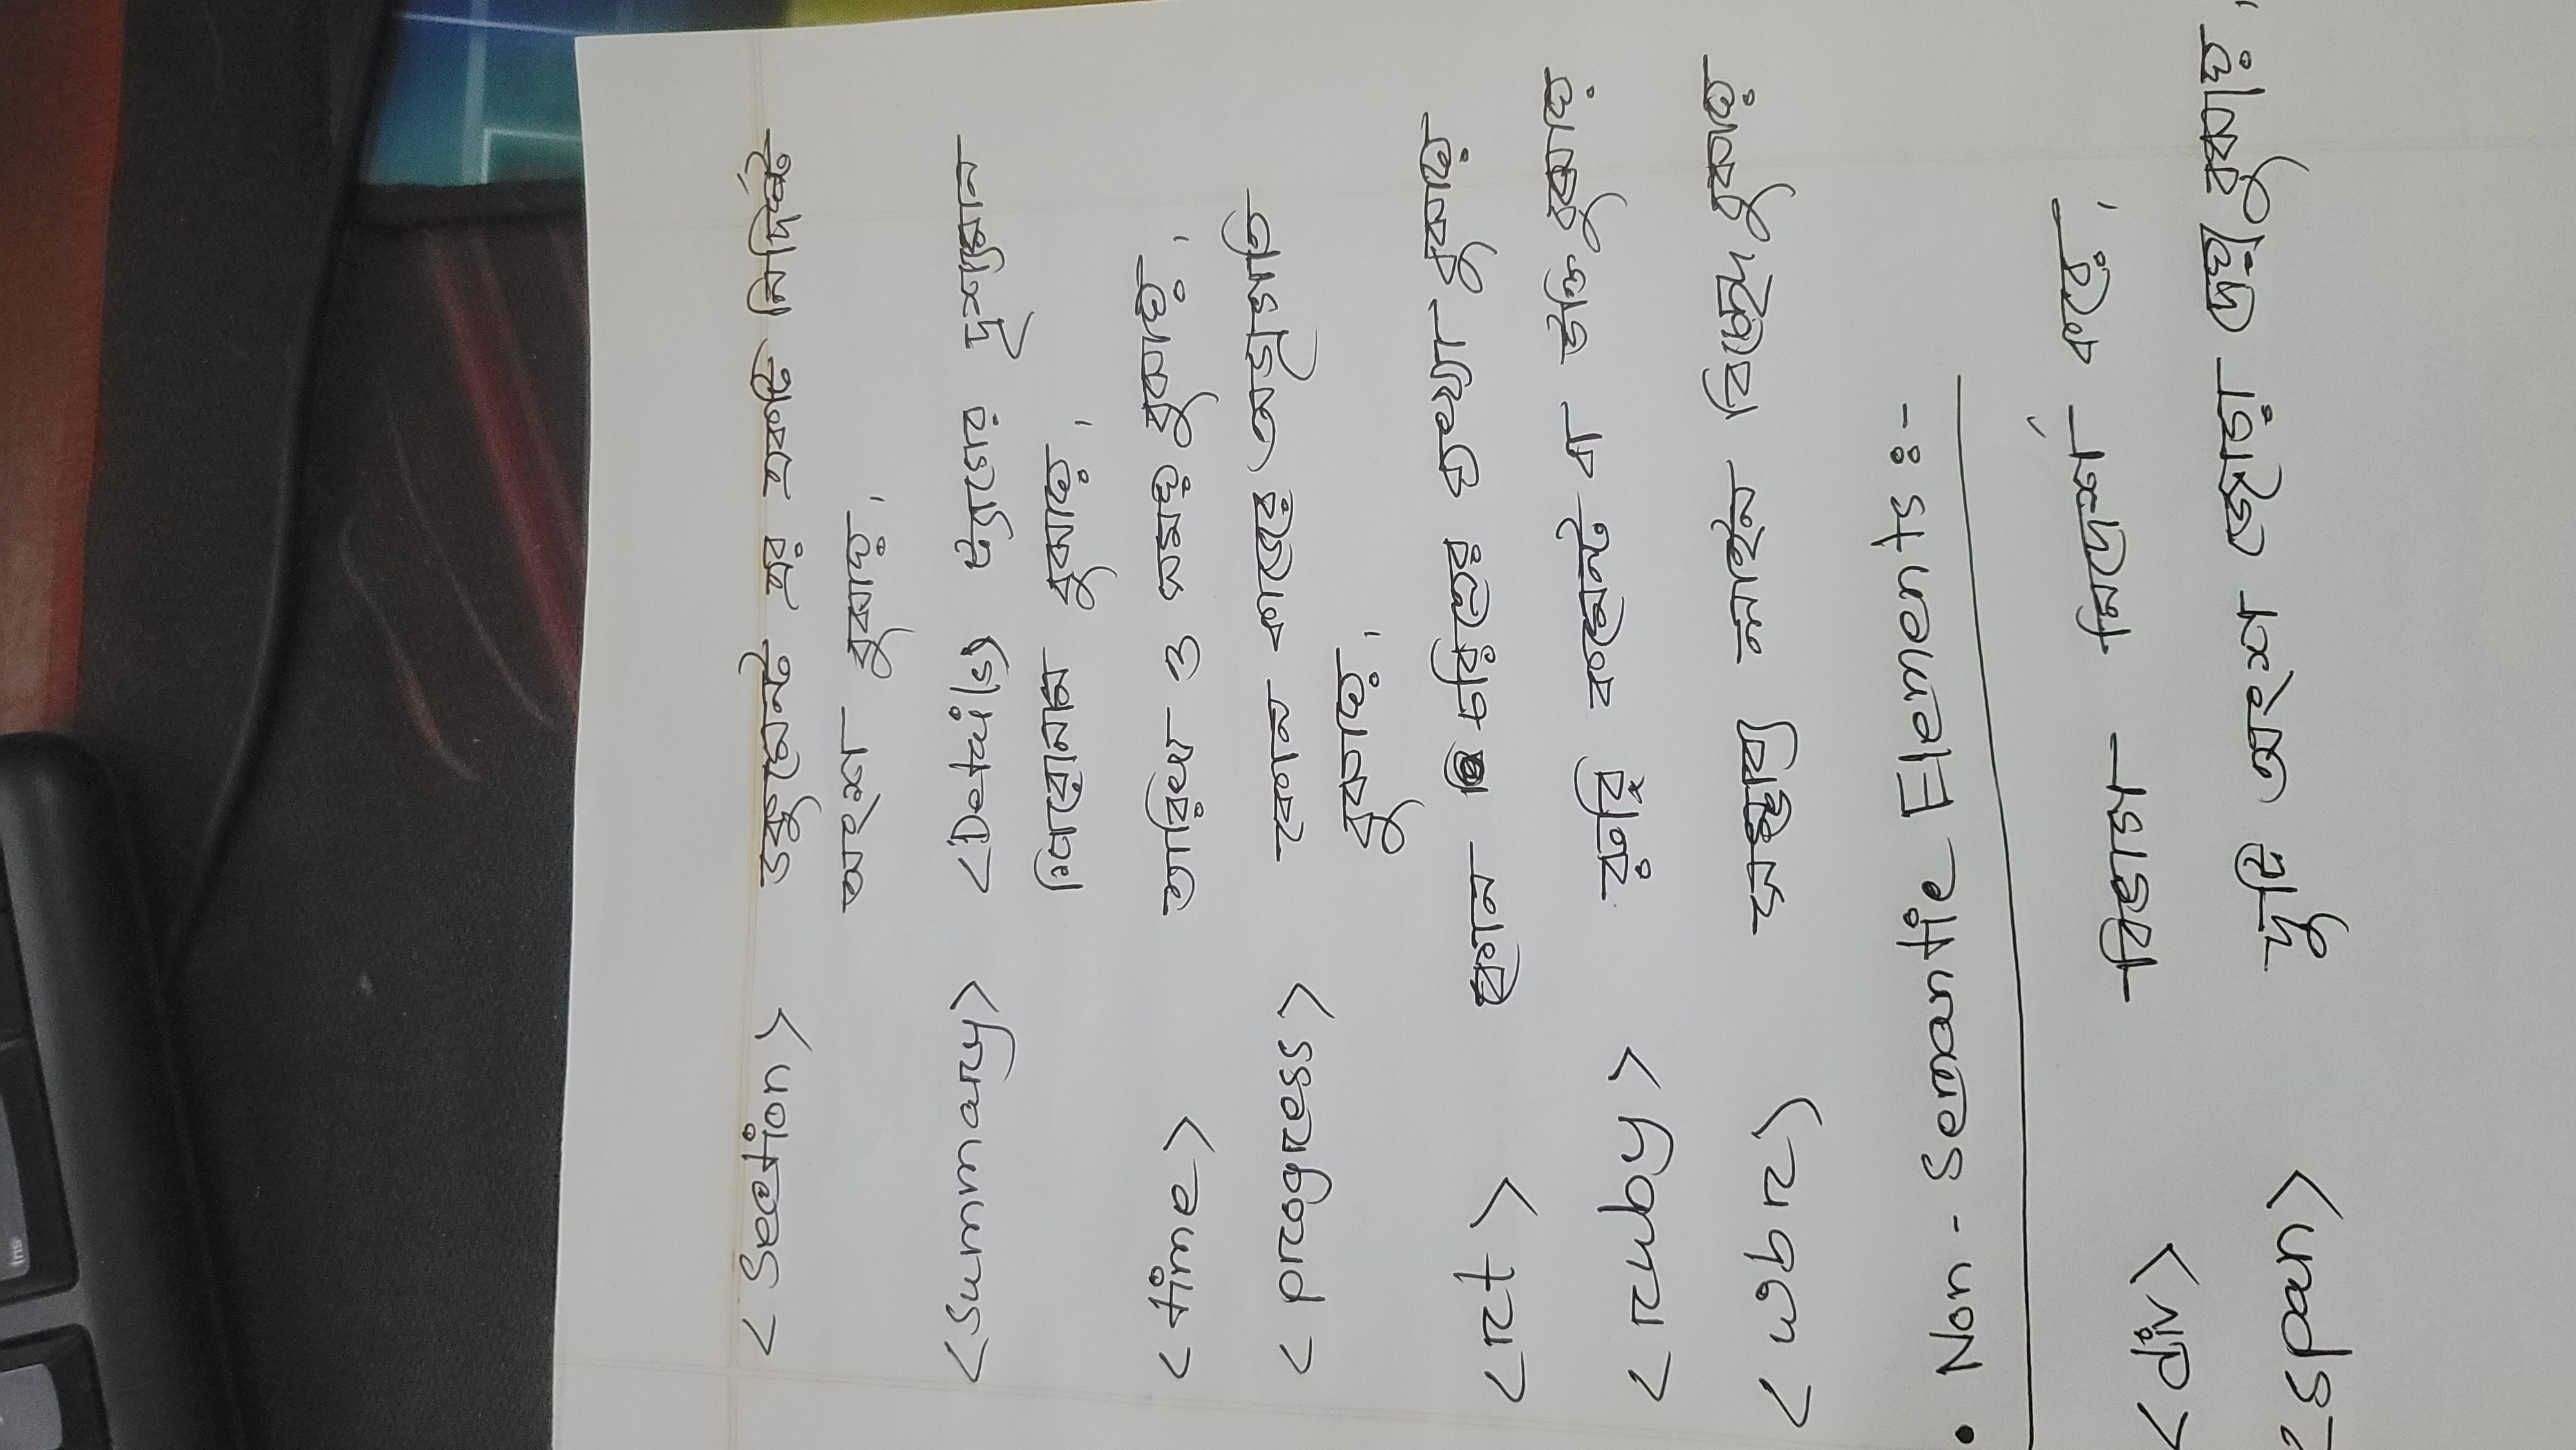 Ins
<section> ডকুমেন্ট এর একটি নির্দিষ্ট
অংশ বুঝায়,
<summary> <Details> ট্যাগের দৃশ্যমান
শিরোনাম বুঝায়,
<time> তারিখ ও সময় বুঝায়,
<progress> কোন কাজের অগ্রগতি
বুঝায়,
<rt> কোন চরিত্রের ব্যখ্যা বুঝায়
<ruby> রুবি কমেন্ট বা উক্তি বুঝায়
<wbr> সম্ভাব্য লাইন বিচ্ছেদ বুঝায়
• Non - Semantic Elements :-
<div> বিভাগ নির্দেশ করে,
<span> দুটি অংশ জোড়া দেয়া বুঝায়,